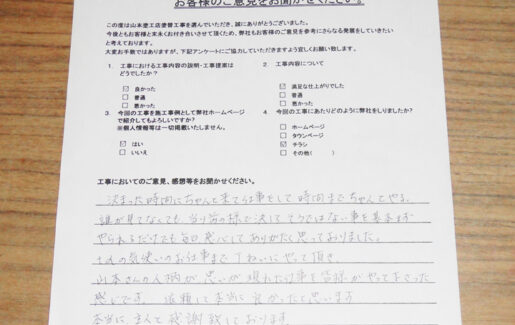 お客様のご意見をお聞かせください。
この度は山本塗工店塗替工事を選んでいただき、誠にありがとうございました。
今後ともお客様と末永くお付き合いさせて頂くため、弊社もお客様のご意見を参考にさらなる発展をしていきたい
と考えております。
大変お手数ではありますが、下記アンケートにご協力していただきますよう宜しくお願い致します。
1. 工事における工事内容の説明・工事提案は
どうでしたか?
☑ 良かった
□ 普通
□ 悪かった
2. 工事内容について
☑ 満足な仕上がりでした
□ 普通
□ 悪かった
3. 今回の工事を施工事例として弊社ホームページ
で紹介してもよろしいですか?
※個人情報等は一切掲載いたしません。
☑ はい
□ いいえ
4. 今回の工事にあたりどのように弊社をしりましたか?
□ ホームページ
□ タウンページ
☑ チラシ
□ その他( )
工事においてのご意見、感想等をお聞かせください。
決まった時間にちゃんと来て仕事をして時間までちゃんとやる。
誰が見てなくても、当り前の様で決して
やられるだけでも毎日感心してありがたく思っておりました。
気使いのお仕事までていねいにやって頂き、
山本さんの人柄が 思いが現れた仕事を皆様がやって下さった
感じです。 依頼して本当に良かったと思います
本当に、主人と感謝致しております。